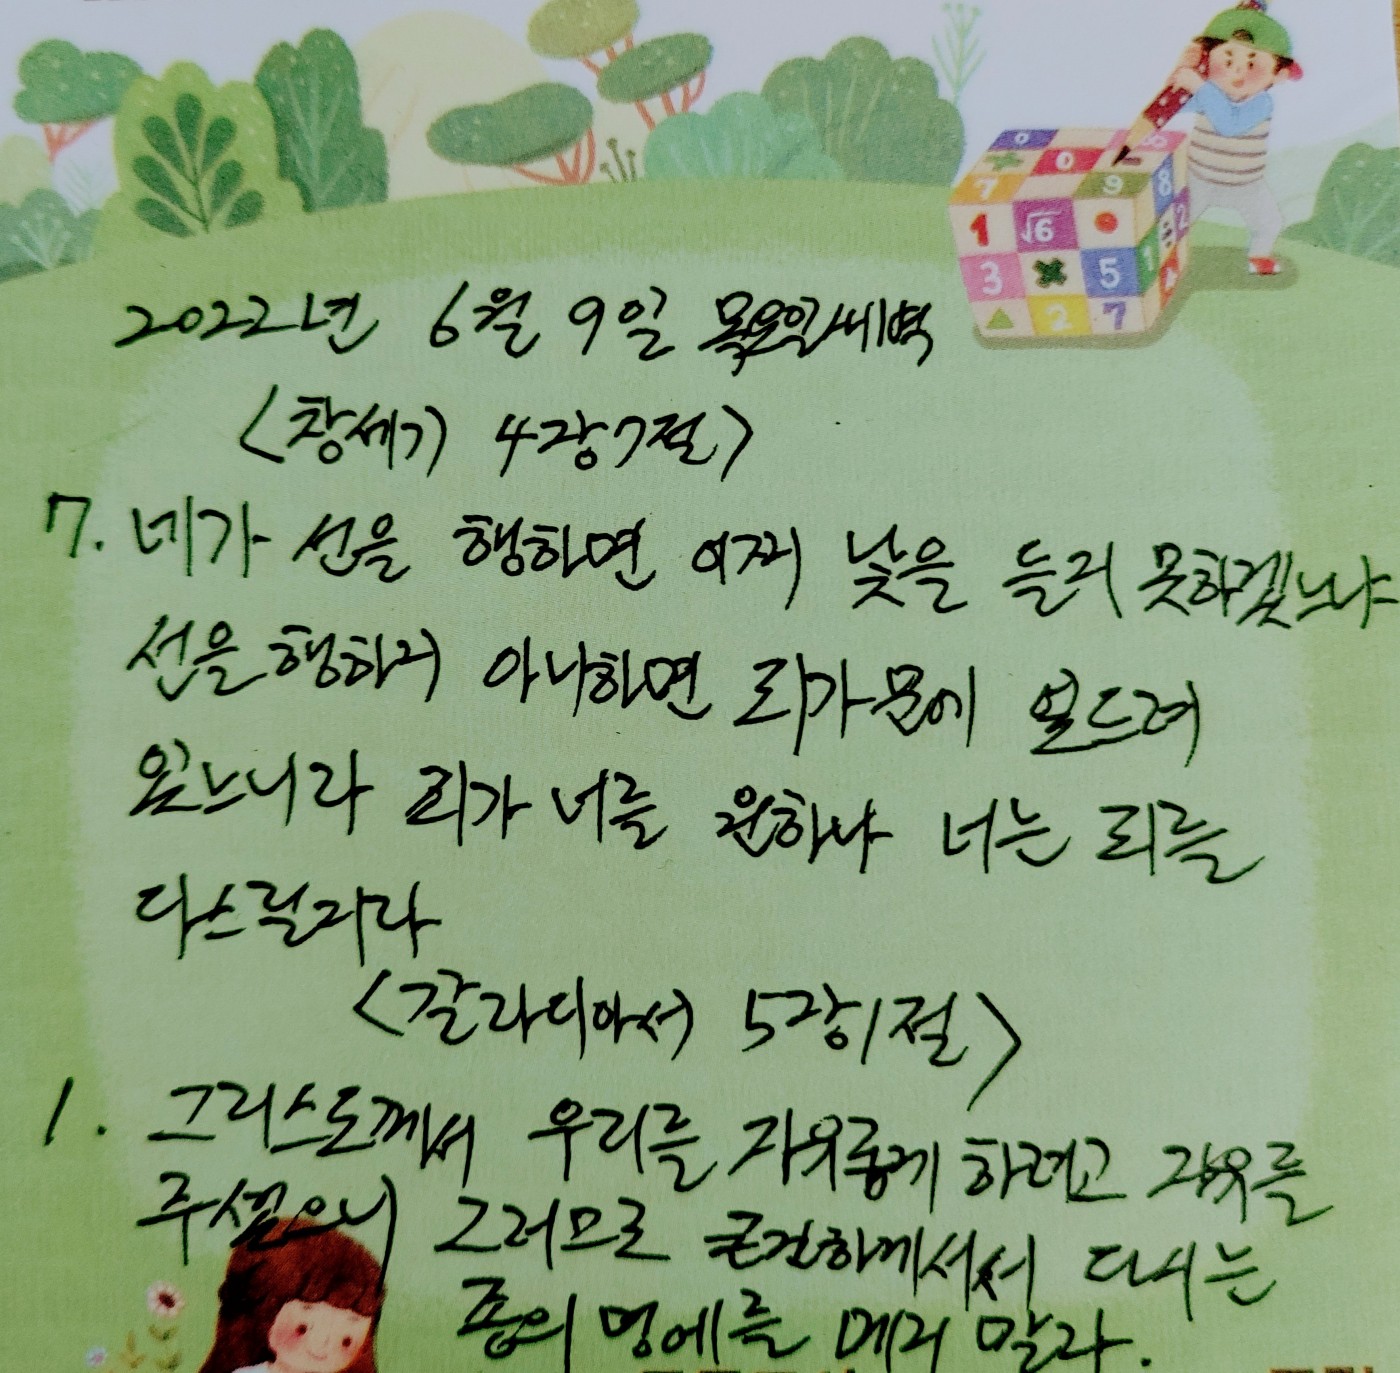 2022년 6월 9일 목요일새벽
<창세기 4장7절>
7. 네가 선을 행하면 어찌 낯을 들지 못하겠느냐
선을 행하지 아니하면 죄가 문에 엎드려
있느니라 죄가 너를 원하나 너는 죄를
다스릴지라
<갈라디아서 5장1절>
1. 그리스도께서 우리를 자유롭게 하려고 자유를
주셨으니 그러므로 굳건하게서서 다시는
종의 멍에를 메지 말라.
0
0
7 9 8
1 √6 2
3 5 1
2 7